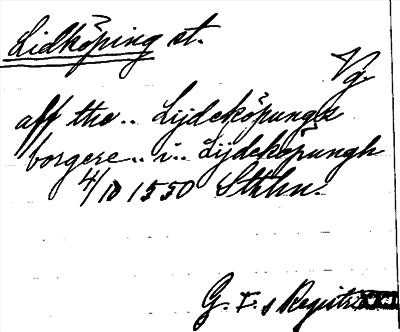 Lidköping st.
Vg
aff the .. Lijdeköpungz
borgere .. i .. Lijdeköpungh
4/10 1550 Sthlm.
G. I. s Registr